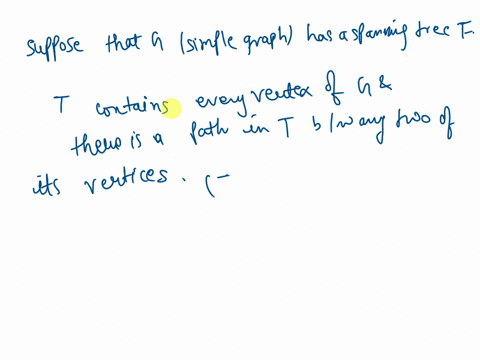 suppose that G (simple graph) has a spanning tree T.
T contains every vertex of G &
there is a path in T b/w any two of
its vertices. (-